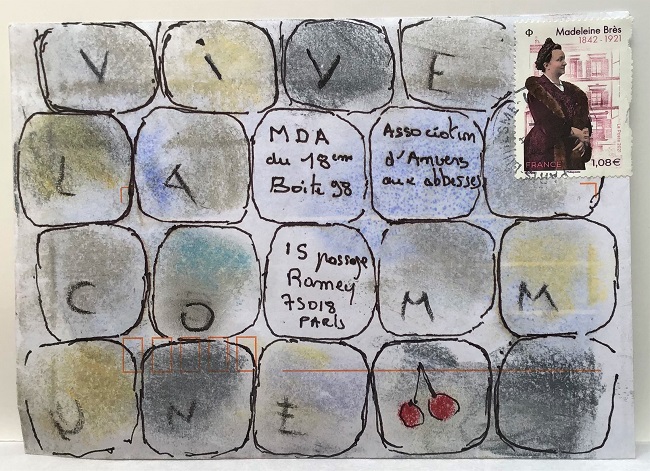 Madeleine Brès
1842 - 1921
FRANCE 1,08 €
V I V E
L A
MDA
du 18em
Boite 98
Association
d'Anvers
aux abbesses
C O
15 passage
Ramey
75018
PARIS
M M
U N E